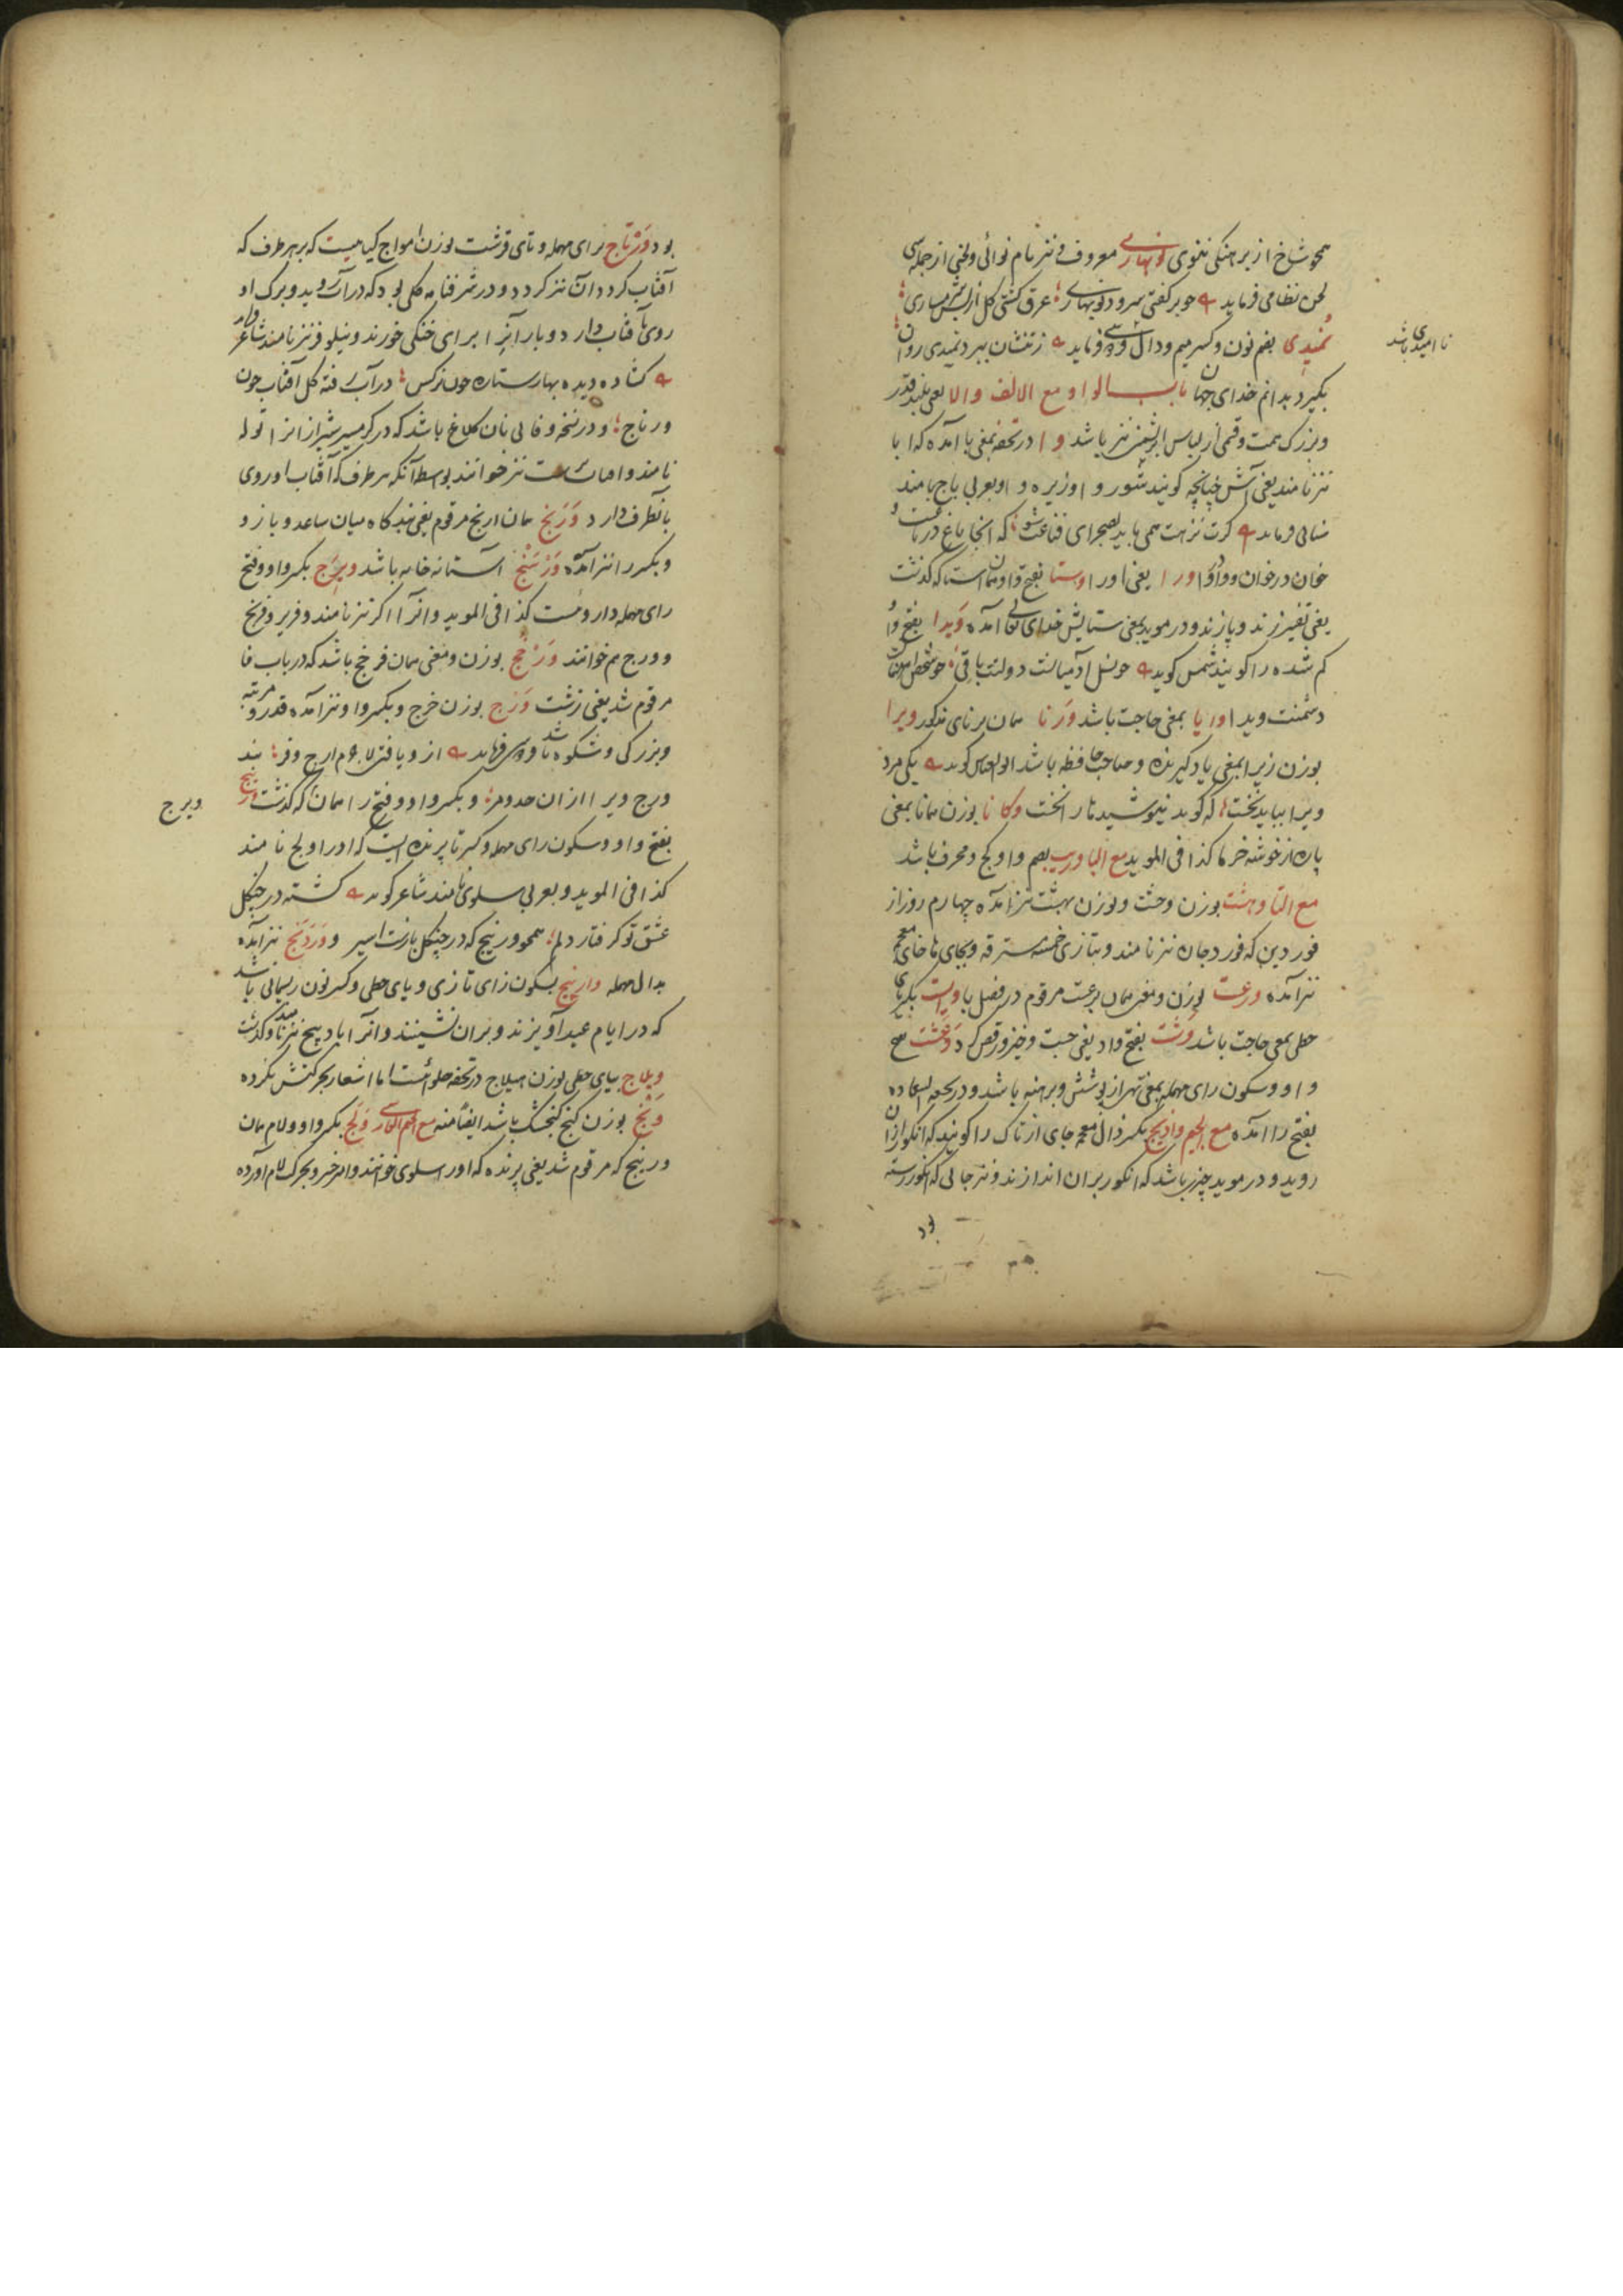 همچو شاخ از برهنگی نغنوی نوبهاری معروف و نیز نام نوائی ولحنی از جمله سی
لحن نظامی فرماید چو بر گفتی سرود نوبهاری عرق گشتی گل از شرمساری
نمیدی بضم نون و کسر میم و دال فرماید ز تنشان ببرد نمیدی روان
نا امیدی باشد
بگیرد بدانم خدای جهان باب الواو مع الالف والا یعنی بلند قدر
وبزرگ همت و قسمی از لباس ابریشمین نیز باشد وا در تحفه بمعنی با آمده که ابا
نیز نامند یعنی آش چنانچه گویند شوروا و زیره وا و بعربی باج نامند
سنائی فرماید گرت نزهت همی باید بصحرای قناعت شو که آنجا باغ در باغست و
خوان در خوان و وا در وا یعنی اورا وستا بفتح واو همان است که گذشت
یعنی تفسیر زند و پازند و در موید بمعنی ستایش خدای تعالی آمده ویدا بفتح واو
گم شده را گویند شمس گوید
دشمنت ویدا وایا بمعنی حاجت باشد ورنا همان برنای مذکور ویرا
بوزن زیرا بمعنی یاد گیرنده و صاحب حافظه باشد ابوالعباس گوید یکی مرد
ویرا بباید نخست که گوید نیوشیدها را نخست وکانا بوزن همانا بمعنی
پاره از خوشه خرما کذا فی الموید مع البا وریب بضم واو کج و محرف باشد
مع التا وهشت بوزن وحشت و بوزن بهشت نیز آمده چهارم روز از
فوردین که فوردجان نیز نامند و بتازی خمسه مسترقه و بجای ها خای معجم
نیز آمده ورغست بوزن و معنی همان برغست مرقوم در فصل با وایست بکسر یای
حطی بمعنی حاجت باشد وشت بفتح واو یعنی جست و خیز و رقص کرد ورغشت بفتح
واو و سکون رای مهمله بمعنی تهی از پوشش و برهنه باشد و در تحفه السعاده
بفتح را آمده مع الجیم وادیج بکسر ذال معجمه جای از تاک را گویند که انگور از ان
روید و در موید چیزی باشد که انگور بر ان اندازند و نیز جائی که انگور رسته
بود ورتاج برای مهمله و تای قرشت بوزن امواج گیاهیست که بر هر طرف که
آفتاب گردد آن نیز گردد و در شرفنامه گلی بود که در آب روید و برگ او
روی با آفتاب دارد و بار آنرا برای خنکی خورند و نیلوفر نیز نامند شاعر
گشاده دیده بهار ستاره چون نرگس در آب رفته گل آفتاب چون
ورتاج و در نسخه وفائی نان کلاغ باشد که در گرمسیر شیراز انرا توله
نامند و آفتاب پرست نیز خوانند بواسطه آنکه هر طرف که آفتاب او روی
بآنطرف دارد ورنج همان ارنج مرقوم یعنی بندگاه میان ساعد و بازو
و بکسر را نیز آمده ورسنج آستانه خانه باشد ویرج بکسر واو و فتح
رای مهمله داروست کذا فی الموید و انرا اگر نیز نامند و فریر و فرنج
و ورج هم خوانند ورفج بوزن و معنی همان فرخج باشد که در باب فا
مرقوم شد یعنی زشت ورج بوزن خرج و بکسر واو نیز آمده قدر و مرتبه
و بزرگی و شکوه باشد فرماید
ورج ویرا ازان و بکسر واو و فتح را همان که گذشت ورتیج
ویرج
بفتح واو و سکون رای مهمله و کسر تا پرنده ایست که اورا ولج نامند
کذا فی الموید و بعربی سلوی نامند شاعر گوید گشته در چنگل
عشق تو گرفتار دلم همچو ورتیج که در چنگل بازست اسیر و وردیج نیز آمده
بدال مهمله وازنیج بسکون زای تازی و یای حطی و کسر نون ریسمانی باشد
که در ایام عید آویزند و بر ان نشینند و انرا باد پیچ نیز نامند و گذشت
ویلاج بیای حطی بوزن هیلاج در تحفه حلوائیست اما اشعار بحرکتش نکرده
ونج بوزن گنج گنجشک باشد ایضا منه مع الجیم الفارسی ولج بکسر واو و لام همان
ورتیج که مرقوم شد یعنی پرنده که اورا سلوی خوانند و امیر خسرو بحرکت لام آورده